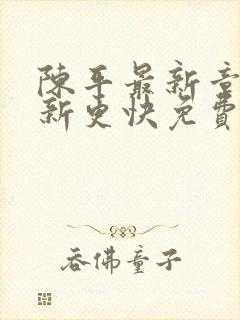 陳平最新章
新更快免費
吞佛童子